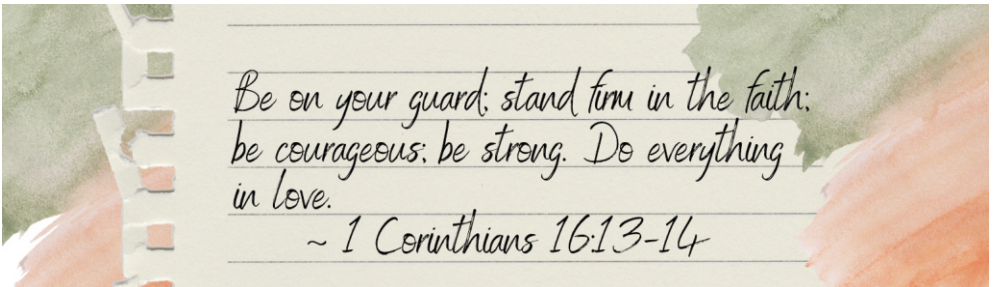 Be on your guard; stand firm in the faith;
be courageous; be strong. Do everything
in love.
~ 1 Corinthians 16:13-14